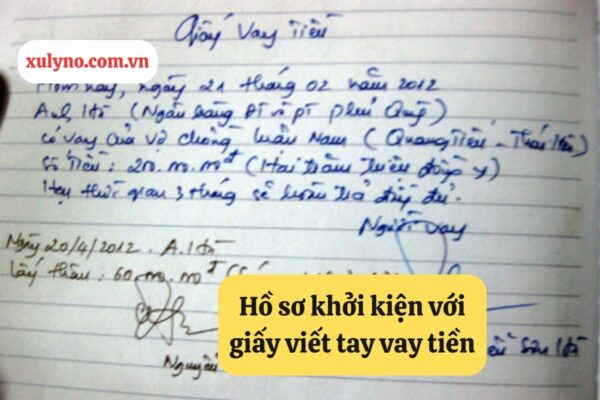 Giấy Vay Tiền
xulyno.com.vn
Hôm nay, ngày 21 tháng 02 năm 2012
Anh Hà (Ngân hàng Phủ Quỳ)
có vay của vợ chồng Nam (Quang Tiến - Thái Hòa)
Số tiền: (Hai trăm triệu đồng)
Hẹn thời gian 3 tháng sẽ hoàn trả đầy đủ.
Người vay
Ngày 20/4/2012. A. Hà
lấy thêm: 60.
Hồ sơ khởi kiện với
giấy viết tay vay tiền
Nguyễn
Sơn Hà